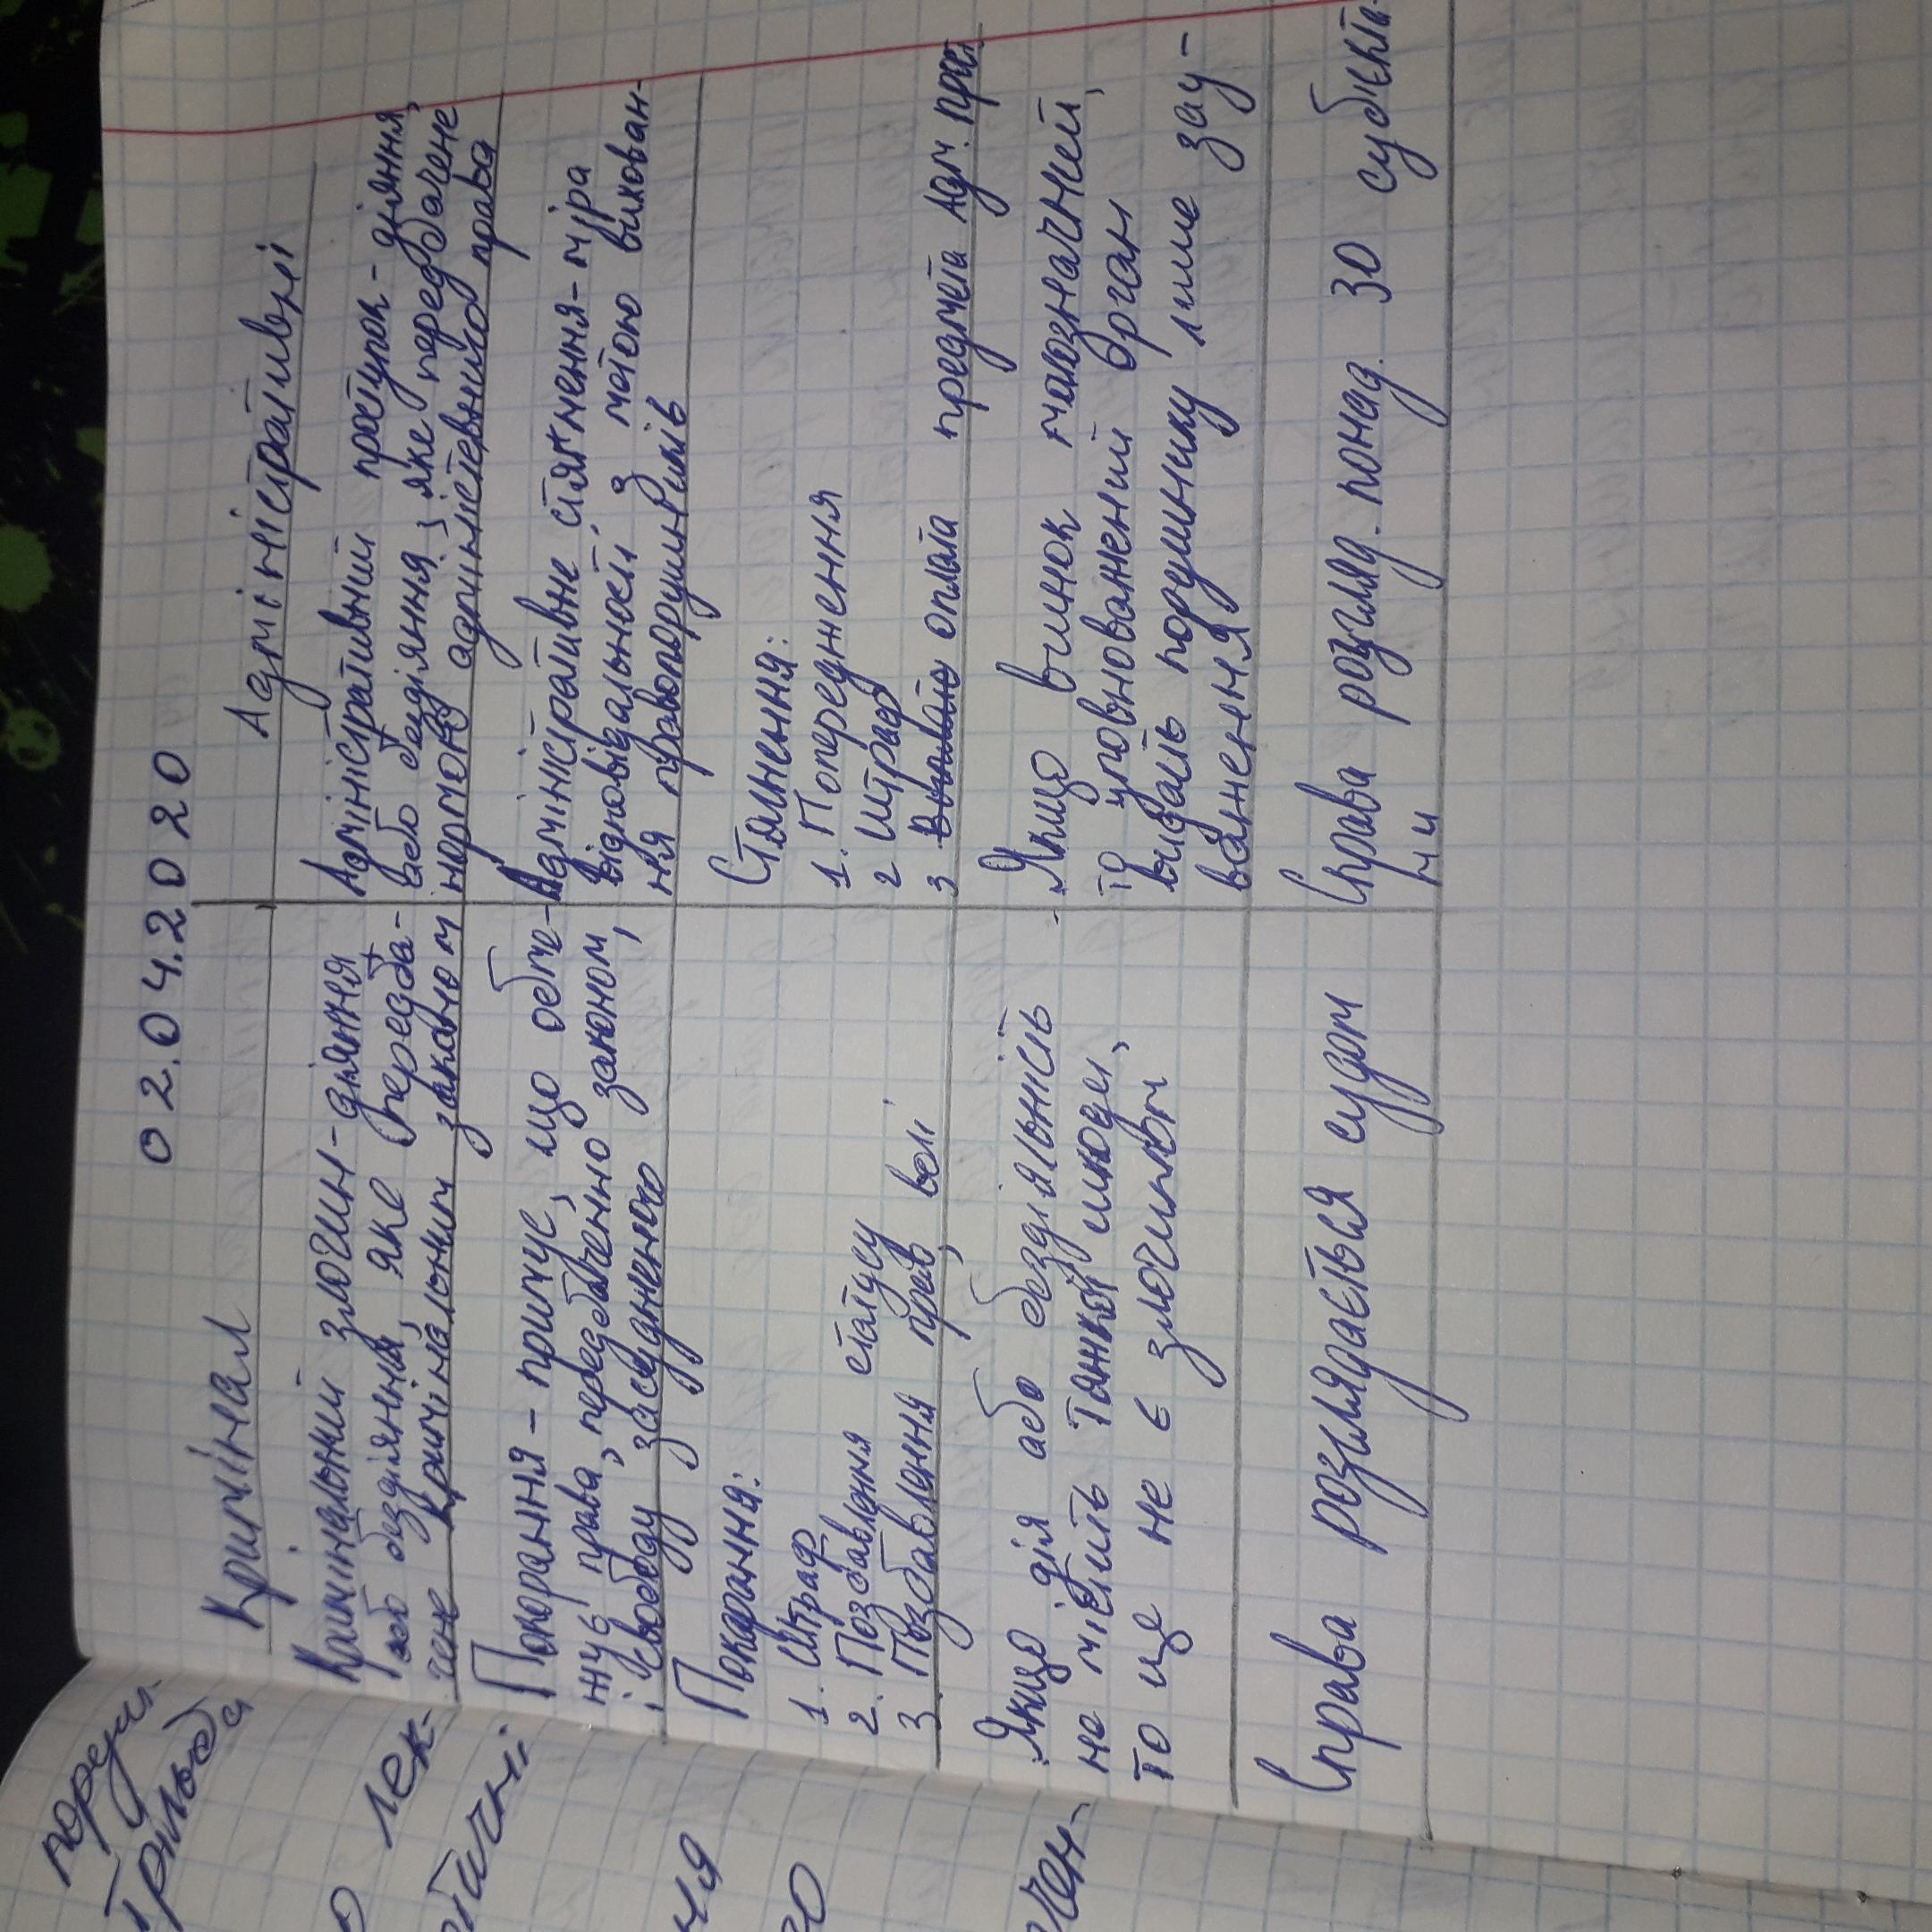 02.04.2020
Кримінал
Адміністративні
Кримінальний злочин - діяння
або бездіяння, яке передба-
чене кримінальним законом
Адміністративний проступок - діяння,
або бездіяння, яке передбачене
нормою адміністевного права
Покарання - примус, що обме-
жує права, передбаченно законом,
і свободу засудженного
Адміністративне стягнення - міра
відповідальності з метою вихован-
ня правопорушників
Покарання:
1. Штраф
2. Позбавлення статусу
3. Позбавлення прав, волі
Стягнення:
1. Попередження
2 Штраф
3 оплата предмета Адм. прав
Якщо дія або бездіяльність
не містить тяжкої шкоди,
то це не є злочином
Якщо вчинок малозначний,
то уповноважений орган
видасть порушнику лише зау-
важення
Справа розглядається судом
Справа розгляд. понад. 30 суб'єкта-
ми
поруш-
лек-
ня
чен-